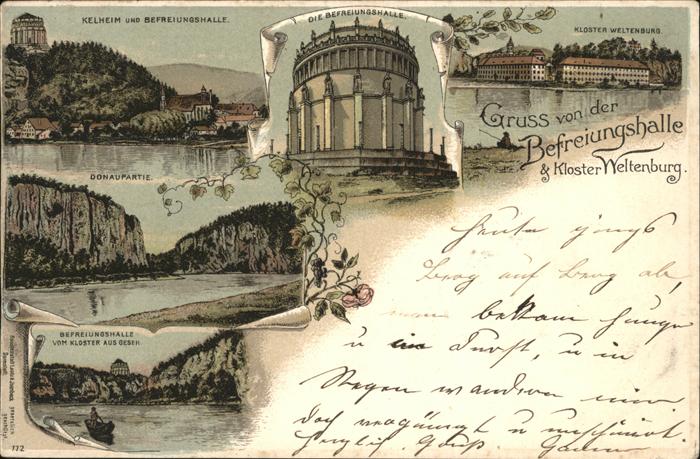 KELHEIM UND BEFREIUNGSHALLE.
DIE BEFREIUNGSHALLE.
KLOSTER WELTENBURG.
Gruss von der
Befreiungshalle
& Kloster Weltenburg.
DONAUPARTIE.
BEFREIUNGSHALLE
VOM KLOSTER AUS GESEH.
112
Heute gings
Berg auf Berg ab,
man bekam Hunger
u Durst, u im
Regen wandern wir
doch vergnügt u
Herzlich. Gruß.